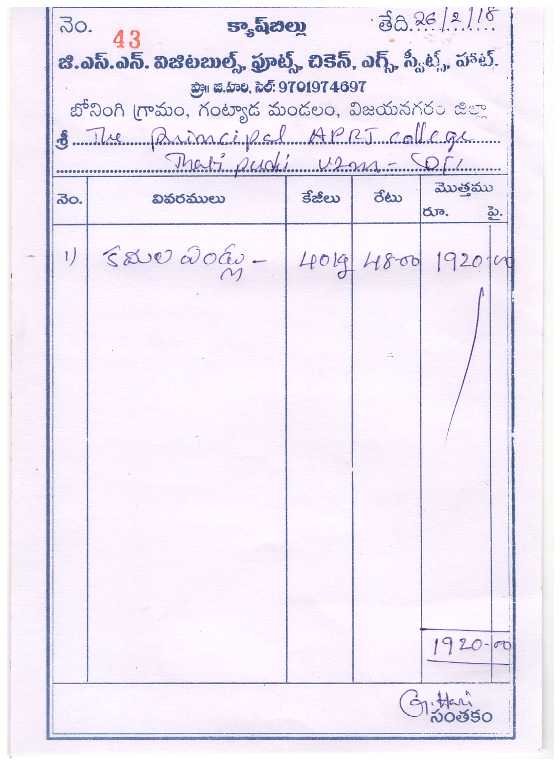 నెం. 43 క్యాష్‌బిల్లు తేది. 26/2/18
జి.ఎస్.ఎన్. విజిటబుల్స్, ఫ్రూట్స్, చికెన్, ఎగ్స్, స్వీట్స్, హాట్.
ప్రొ॥ జి.హరి, సెల్: 9701974697
బోనంగి గ్రామం, గంట్యాడ మండలం, విజయనగరం జిల్లా
శ్రీ The Principal APRJ College
Thatipudi VZM -
నెం. వివరములు కేజీలు రేటు మొత్తము
రూ. పై.
1) కమల పండ్లు - 40kg 48-00 1920-00
1920-00
G. Hari
సంతకం